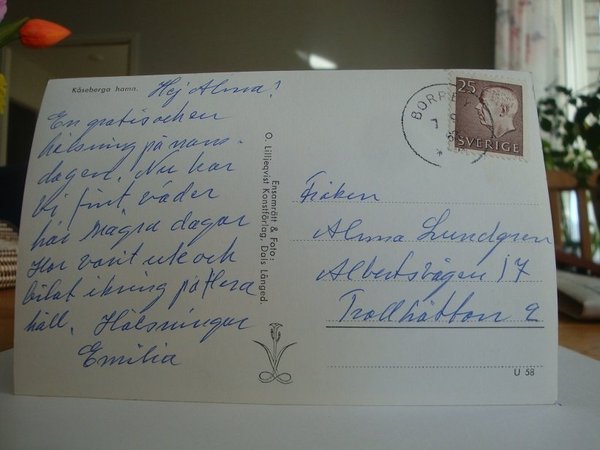 Kåseberga hamn.
Hej Alma!
En gratisochen
hälsning på nams-
dagen. Nu har
vi fint väder
här några dagar
Har varit ute och
bilat ikring på flera
håll. Hälsningar
Emilia
Ensamrätt & Foto:
O. Lilljeqvist Konstförlag, Dals Långed.
25
SVERIGE
BORRBY
Fröken
Alma Lundgren
Albertsvägen 17
Trollhättan 2
U 58